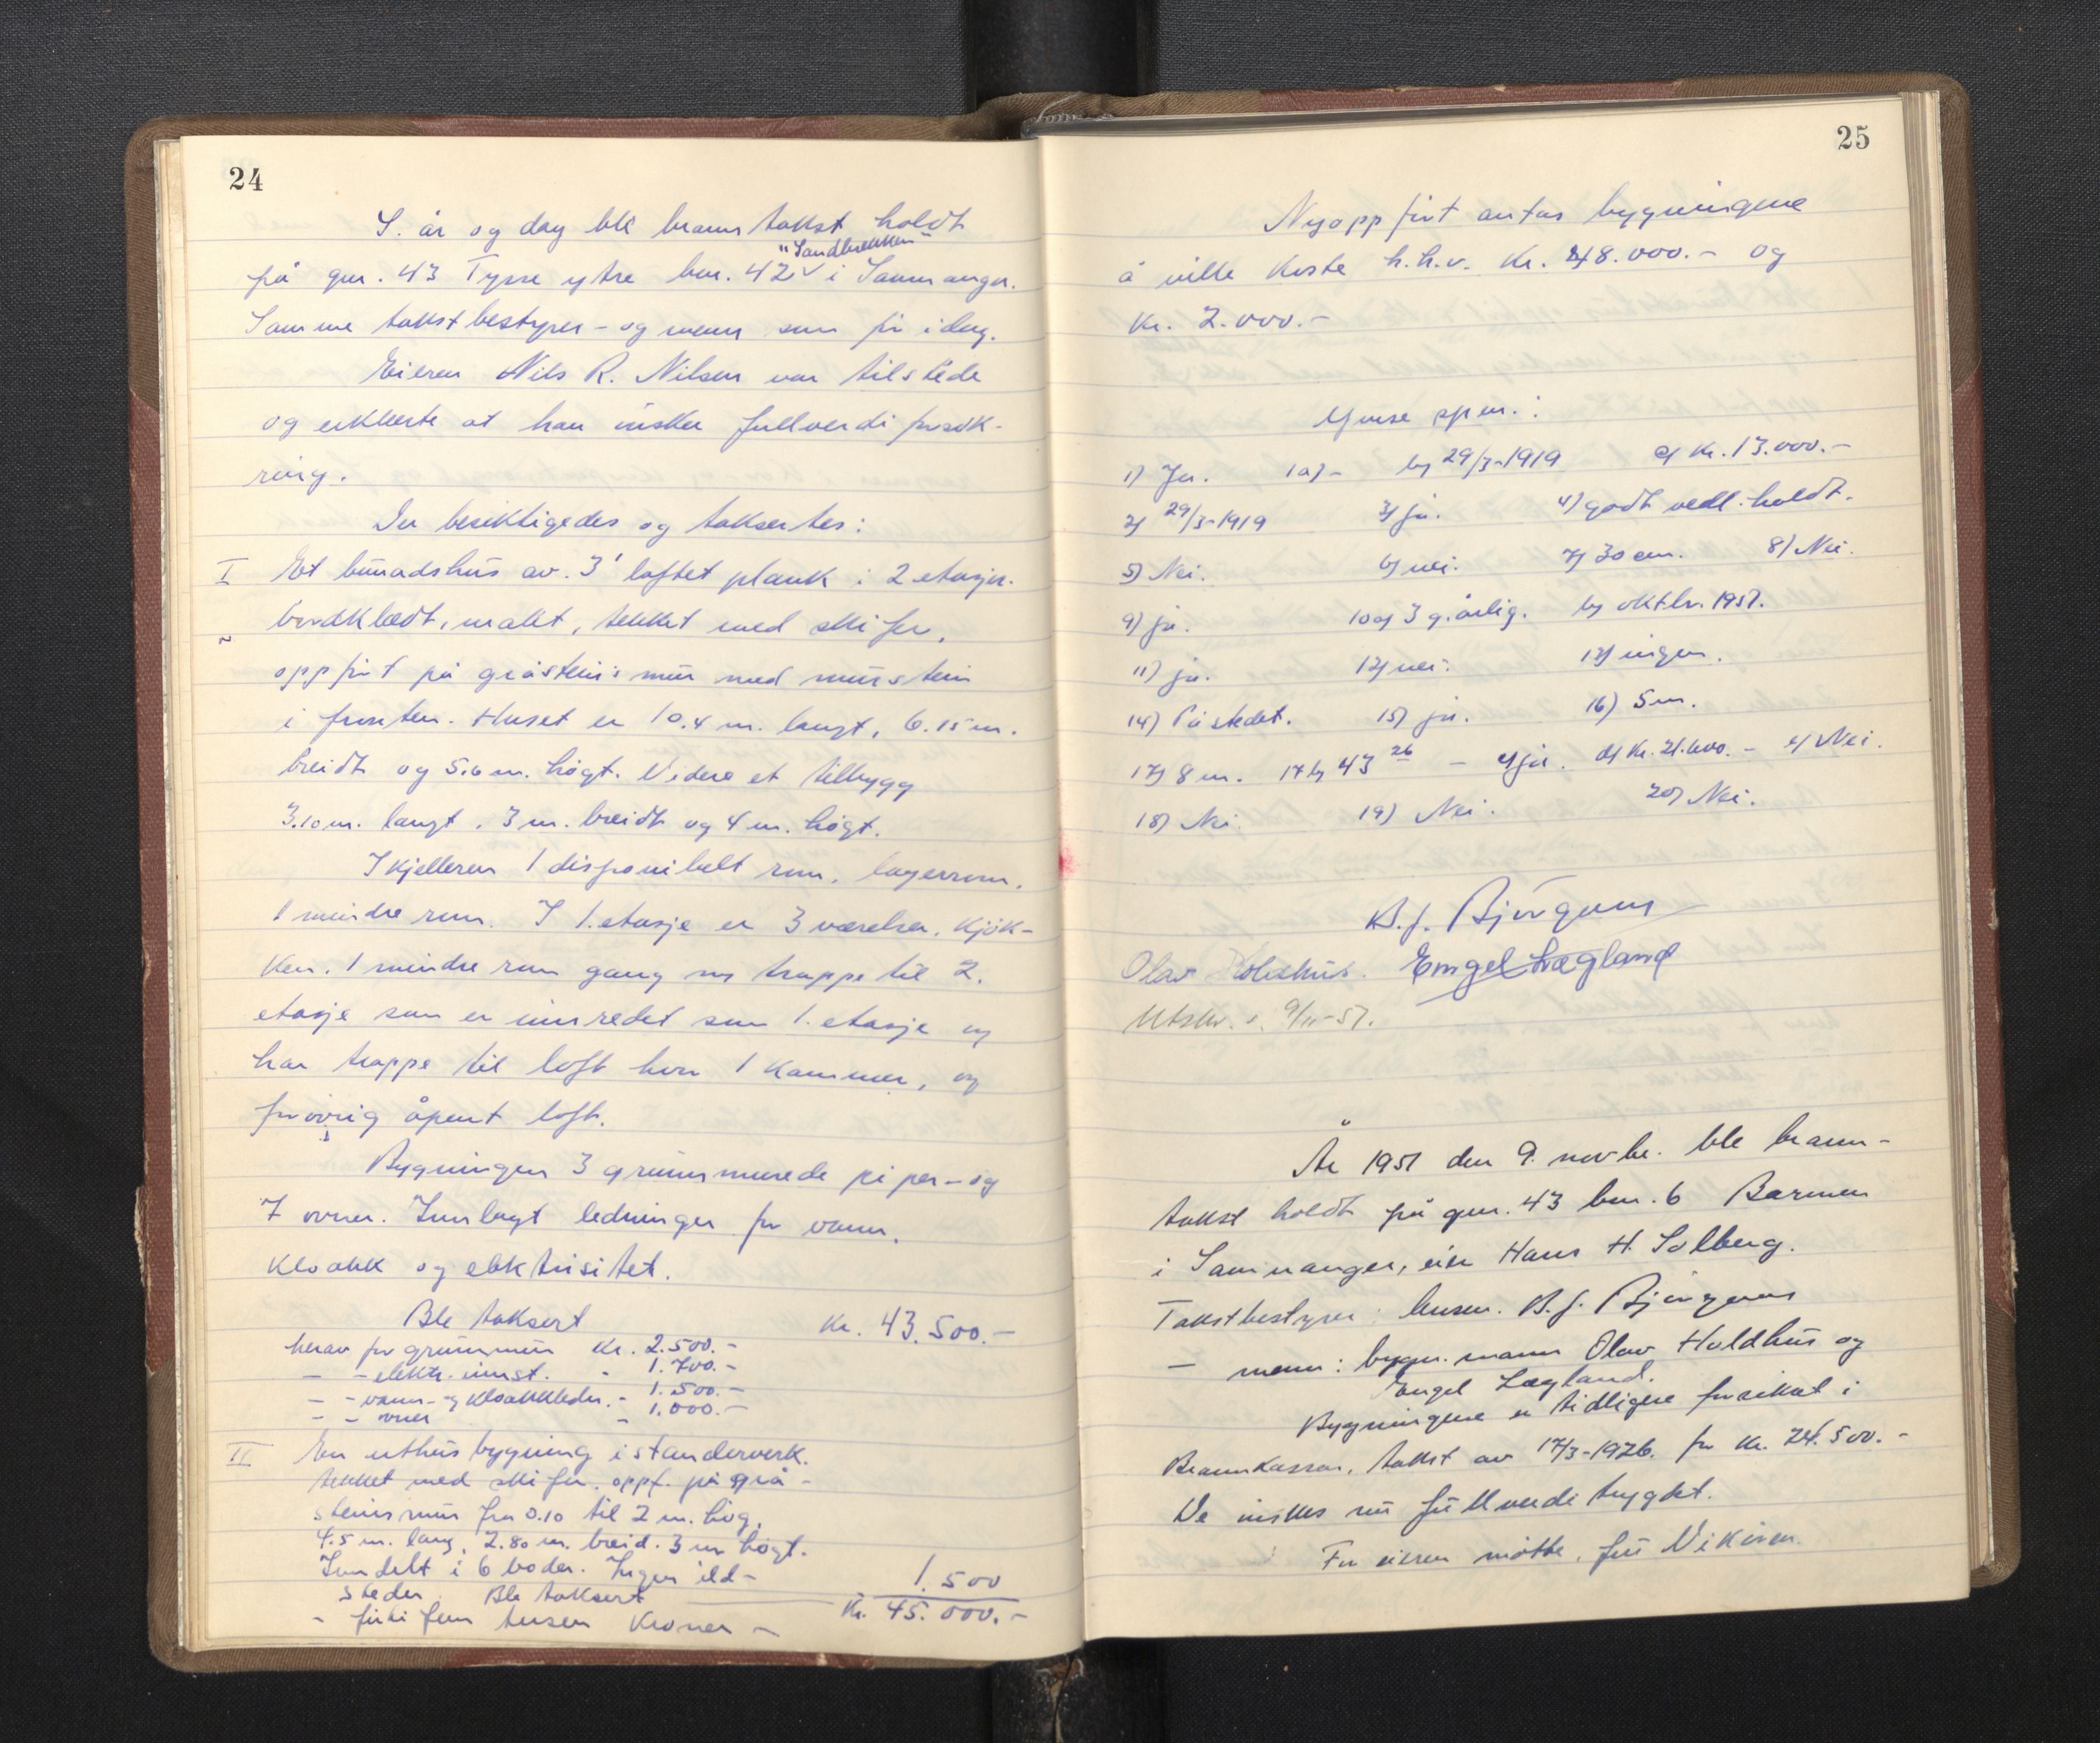 24
S. år og dag ble branntakst holdt
"Sandbrekken"
på gnr. 43 Tysse ytre bnr. 42 i Samnanger.
Samme takstbestyrer - og menn som før idag.
Eieren Nils R. Nilsen var tilstede
og erklærte at han ønsker fullverdi forsik-
ring.
Der besiktigedes og taksertes:
I Et bunadshus av 3" loftet plank i 2 etasjer.
bordklædt, malet, tekket med skifer,
oppført på gråsteins mur med murstein
i fronten. Huset er 10.4 m. langt, 6.15 m.
breidt og 5.6 m. høgt. Videre et tilbygg
3.10 m. langt, 3 m. breidt og 4 m. høgt.
I kjelleren 1 disponibelt rom, lagerrom,
1 mindre rom. I 1. etasje er 3 værelser, kjøk-
ken, 1 mindre rom gang og trappe til 2.
etasje som er innredet som 1. etasje og
har trappe til loft hvor 1 kammer, og
forøvrig åpent loft.
Bygningen 3 grunnmurede piper - og
7 ovner. Innlagt ledninger for vann,
kloakk og elektrisitet.
Ble taksert Kr. 43.500.-
herav for grunnmur Kr. 2.500.-
- - elektr. innst. - 1.700.-
- - vann- og kloakkledn. - 1.500.-
- - ovner - 1.000.-
II En uthusbygning i standerverk.
tekket med skifer, oppf. på grå-
steinsmur fra 0.10 til 2 m. høg,
4.5 m. lang, 2.80 m. breid. 3 m høgt.
Inndelt i 6 boder. Ingen ild-
steder. Ble taksert 1.500
- førti fem tusen kroner - Kr. 45.000.-
25
Nyoppført antas bygningene
å ville koste h.h.v. Kr. 48.000.- og
Kr. 2.000.-
spm.:
1) Ja. 1a) - b) 29/3-1919 c) Kr. 13.000.-
2) 29/3-1919 3) ja. 4) godt vedl.holdt.
5) Nei. 6) nei. 7) 30 cm. 8) Nei.
9) ja. 10a) 3 g. årlig. b) oktbr. 1951.
11) ja. 12) nei. 13) ingen.
14) På stedet. 15) ja. 16) 5 m.
17) 8 m. 17b) 43 26 - c) ja. d) Kr. 21.600.- e) Nei.
18) Nei. 19) Nei. 20) Nei.
B.J. Bjørgum
Olav Holdhus. Engel Lægland
Utskr. s. 9/11-51.
År 1951 den 9. novbr. ble brann-
takst holdt på gnr. 43 bnr. 6 Barmen
i Samnanger, eier Hans H. Solberg.
Takstbestyrer: lensm. B.J. Bjørgum
- menn: bygn. mann Olav Holdhus og
Engel Lægland.
Bygningene er tidligere forsikret i
Brannkassen, takst av 17/3-1926 for Kr. 24.500.-
De ønskes nu fullverdi trygdet.
For eieren møtte, fru Vikøren.